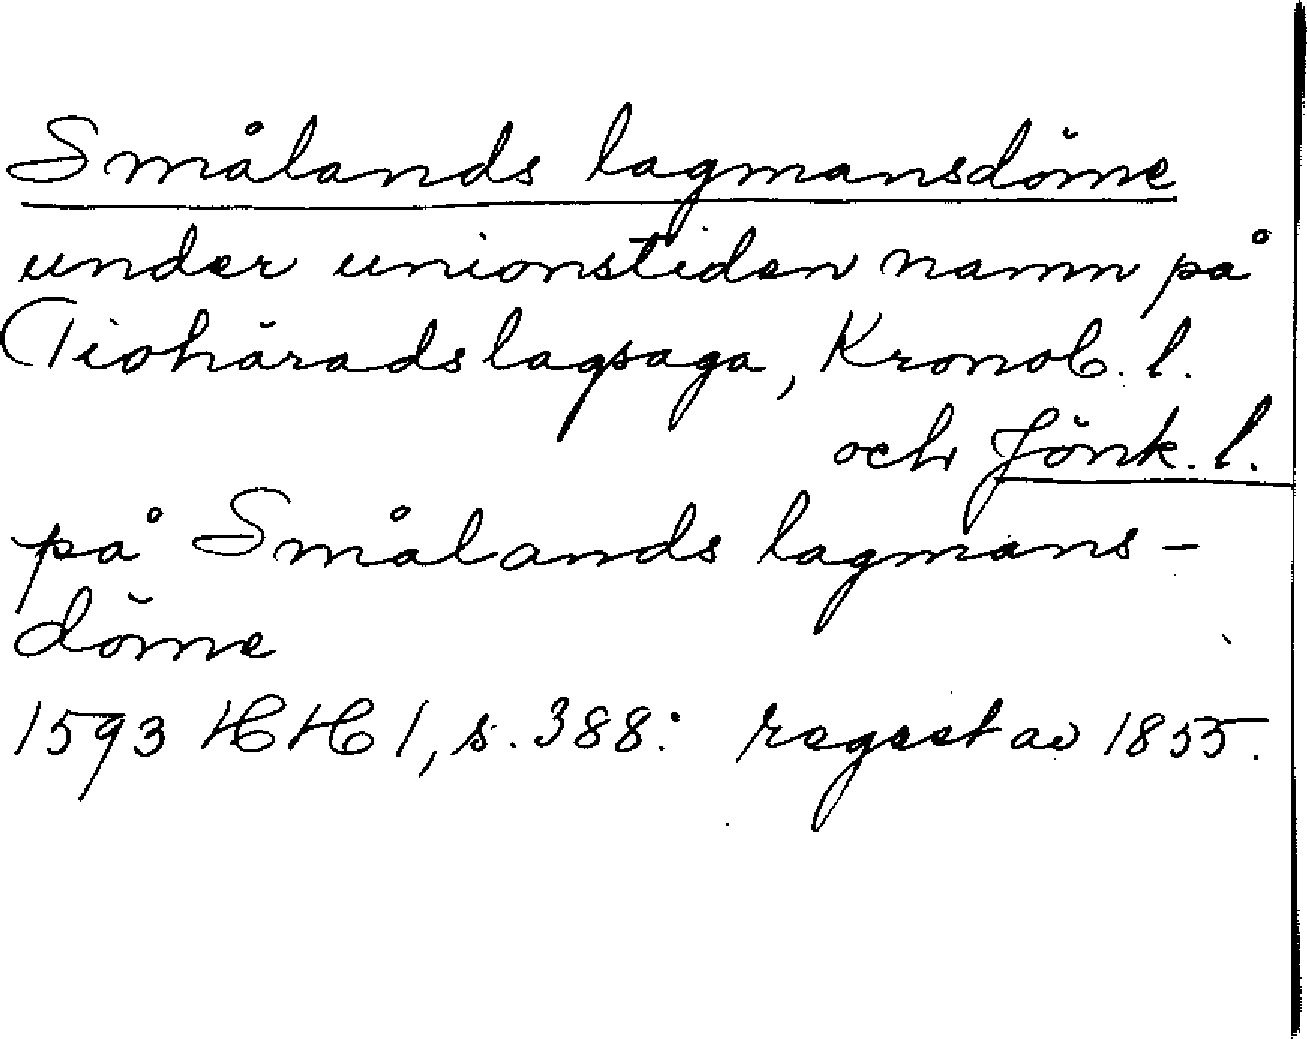 Smålands lagmansdöme
under unionstiden namn på
Tiohärads lagsaga, Kronob. l.
och Jönk. l.
på Smålands lagmans-
döme
1593 HH 1, s. 388: regest av 1855.